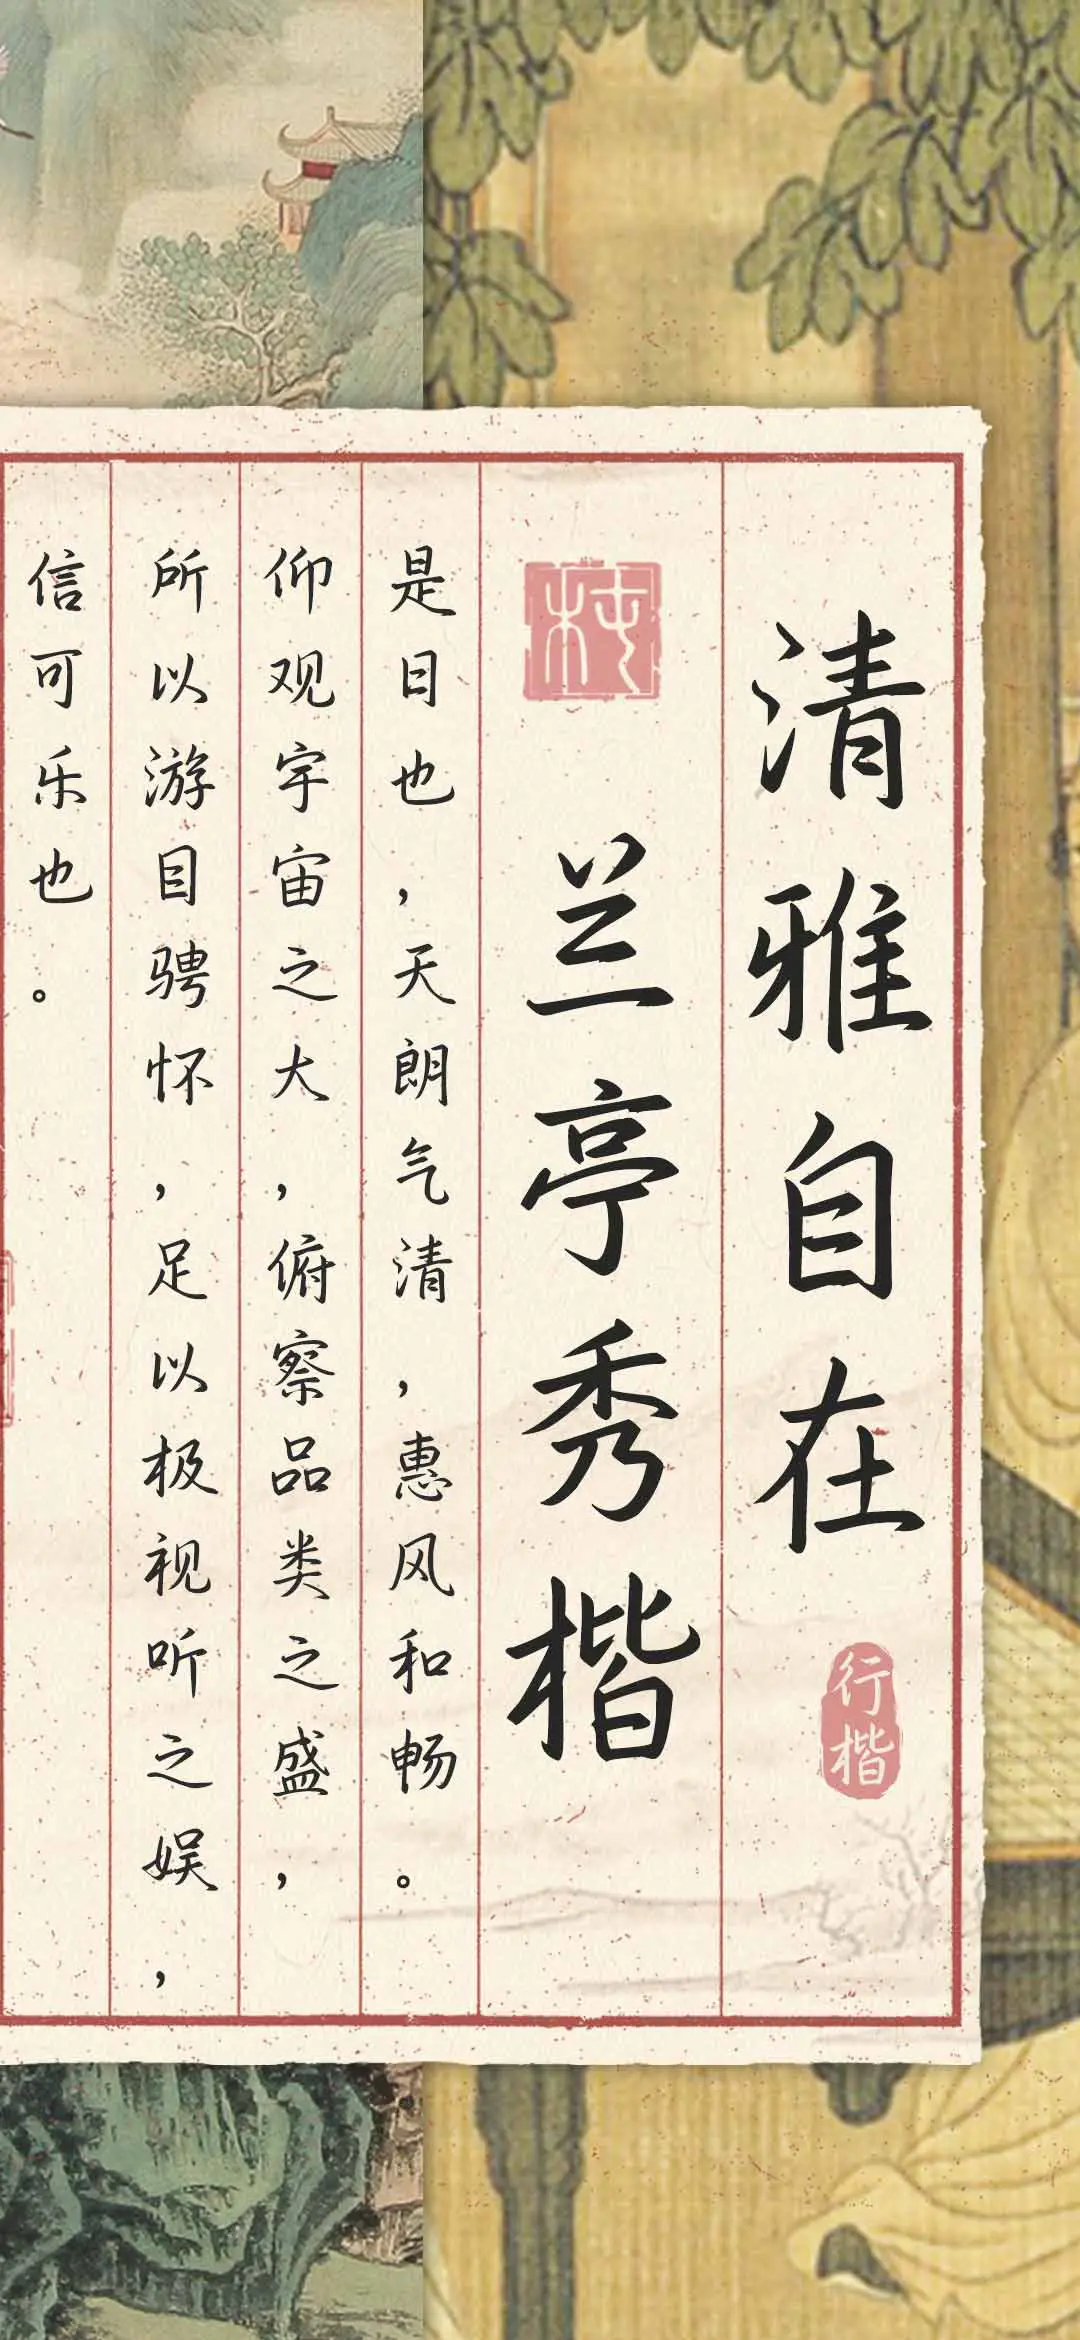 清雅自在
行楷
兰亭秀楷
是日也,天朗气清,惠风和畅。
仰观宇宙之大,俯察品类之盛,
所以游目骋怀,足以极视听之娱,
信可乐也。